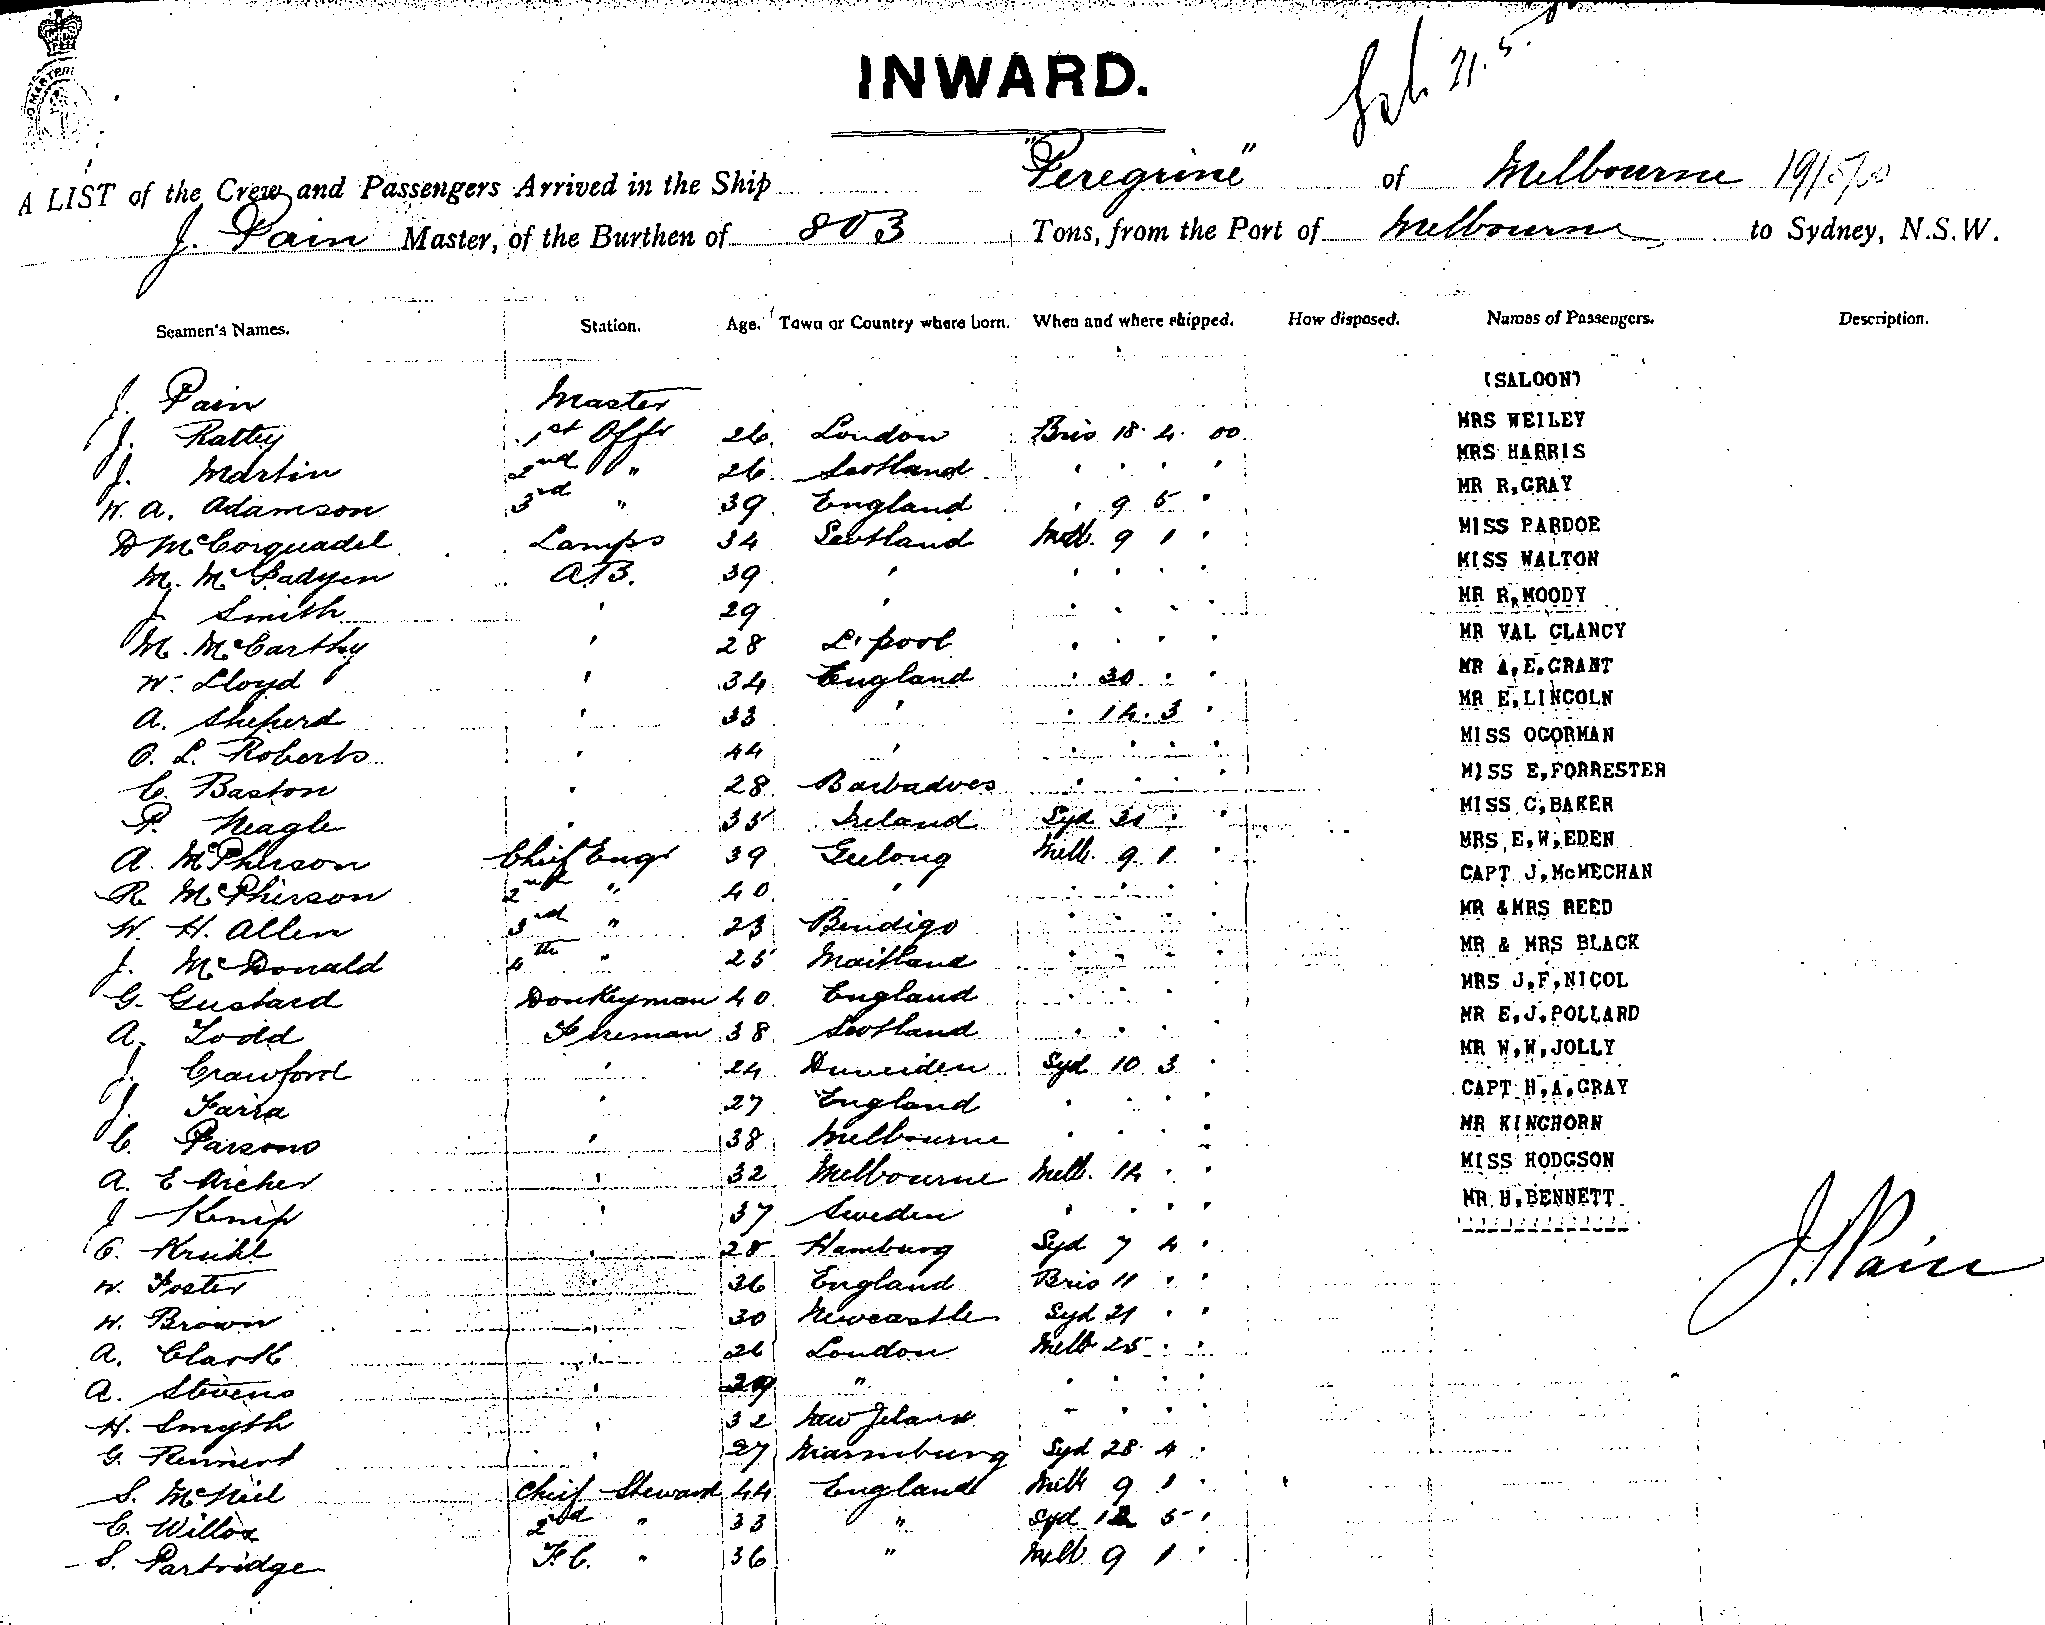 INWARD.
21.5.
A LIST of the Crew and Passengers Arrived in the Ship "Peregrine" of Melbourne 19/5/00
J. Pain Master, of the Burthen of 803 Tons, from the Port of Melbourne to Sydney, N.S.W.
Seamen's Names. Station. Age. Town or Country where born. When and where shipped. How disposed. Names of Passengers. Description.
J. Pain Master
J. Rattey 1st Offr 26 London Bris 18 4 00
J. Martin 2nd " 26 Scotland " " " "
W. A. Adamson 3rd " 39 England " 9 5 "
D McCorquadel Lamps 34 Scotland Melb. 9 1 "
M. McFadyen A.B. 39 " " " " "
J Smith " 29 " " " " "
M. McCarthy " 28 L'pool " " " "
W. Lloyd " 34 England " 30 " "
A. Sheperd " 33 " " 14 3 "
O. L. Roberts " 44 " " " " "
C. Baston " 28 Barbadoes " " " "
P. Neagle " 35 Ireland Syd 31 " "
A. McPherson Chief Engr 39 Geelong Melb. 9 1 "
R. McPherson 2nd " 40 " " " " "
W. H. Allen 3rd " 23 Bendigo " " " "
J. McDonald 4th " 25 Maitland " " " "
G. Gustard Donkeyman 40 England " " " "
A. Todd Fireman 38 Scotland " " " "
J. Crawford " 24 Duneiden Syd 10 3 "
J. Farra " 27 England " " " "
C. Parsons " 38 Melbourne " " " "
A. E Archer " 32 Melbourne Melb. 14 " "
J Kenip " 37 Sweden " " " "
C. Kruhl " 28 Hamburg Syd 7 4 "
W. Foster " 36 England Bris 11 " "
W. Brown " 30 Newcastle Syd 21 " "
A. Clark " 26 London Melb 25 " "
A. Stevens " 29 " " " " "
H. Smyth " 32 New Zeland " " " "
G. Rennert " 27 Syd 28 4 "
S. McNeil Chief Steward 44 England Melb 9 1 "
C. Willox 2nd " 33 " Syd 12 5 "
S. Partridge F.C. " 36 " Melb 9 1 "
(SALOON)
MRS WEILEY
MRS HARRIS
MR R,GRAY
MISS PARDOE
MISS WALTON
MR R,MOODY
MR VAL CLANCY
MR A,E,GRANT
MR E,LINCOLN
MISS OGORMAN
MISS E,FORRESTER
MISS C,BAKER
MRS E,W,EDEN
CAPT J,McMECHAN
MR &MRS REED
MR & MRS BLACK
MRS J,F,NICOL
MR E,J,POLLARD
MR W,W,JOLLY
CAPT H,A,GRAY
MR KINGHORN
MISS HODGSON
MR H,BENNETT
J. Pain